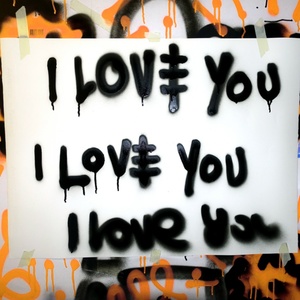 I LOVE YOU
I LOVE YOU
I love You